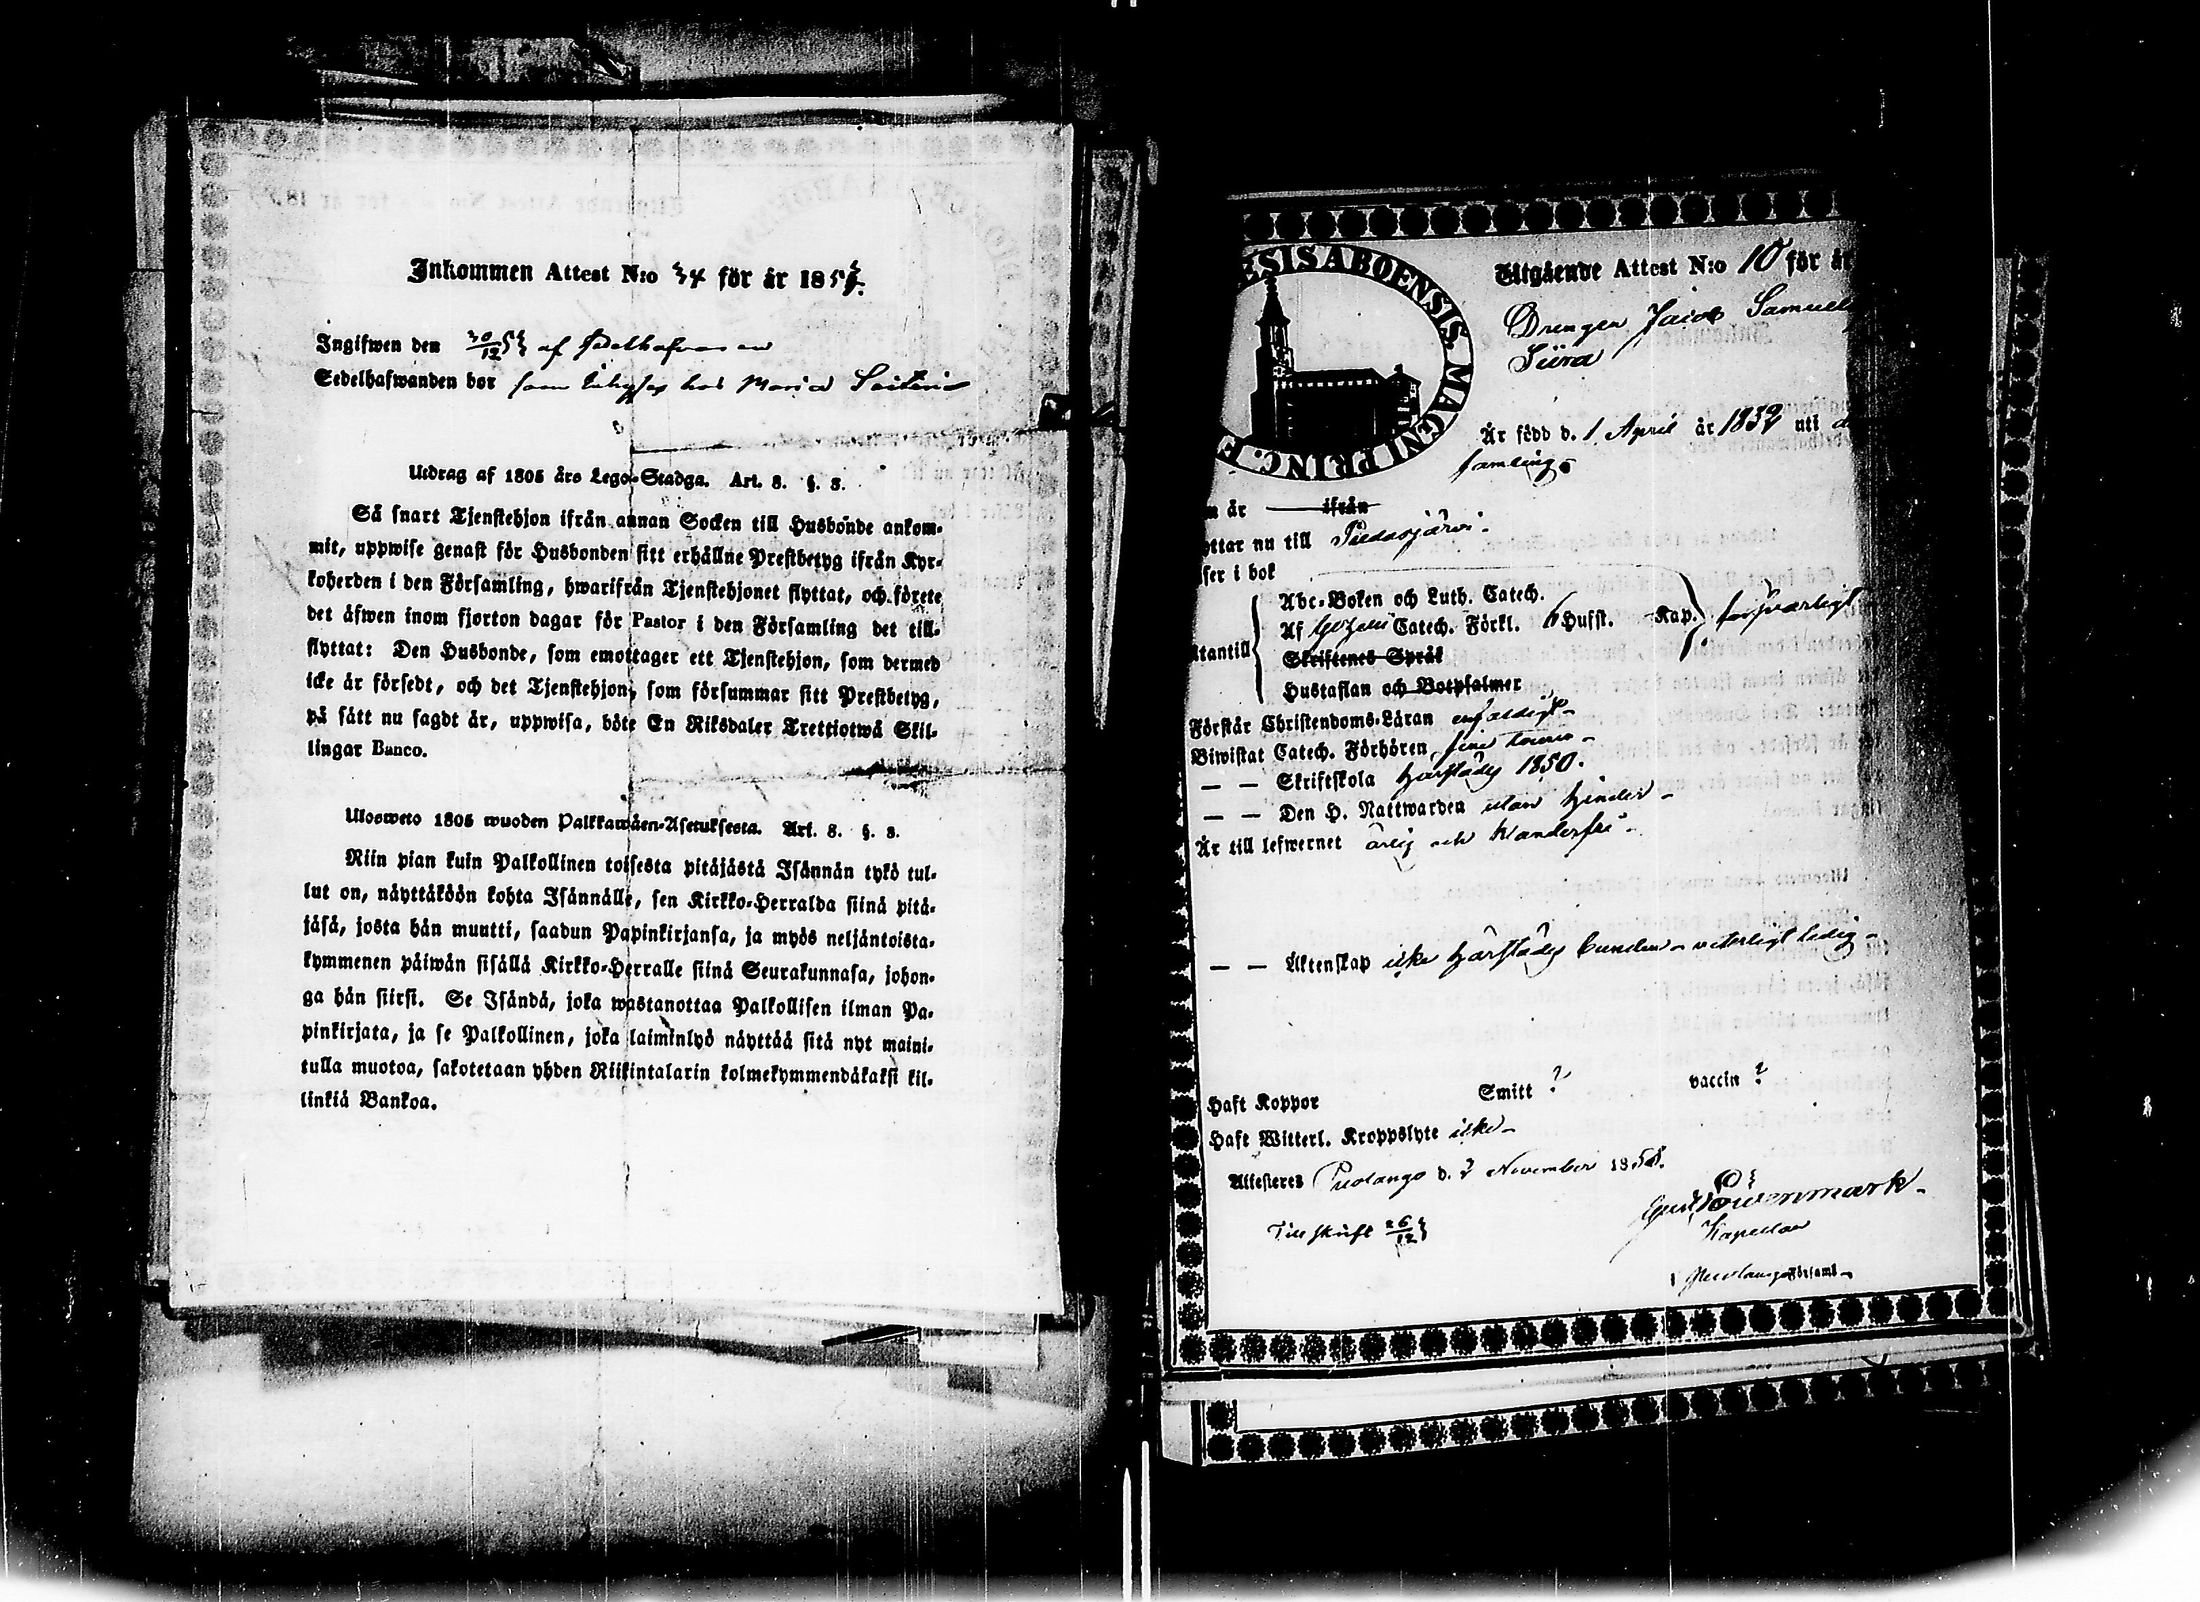 Inkommen Attest N:o 34 för år 185
Ingifwen den 30/12 53 af
Sedelhafwanden bor som hos Maria
Utdrag af 1805 års Lego-Stadga. Art. 8. §. 8.
Så snart Tjenstehjon ifrån annan Socken till Husbonde ankom-
mit, uppwise genast för Husbonden sitt erhållne Prestbetyg ifrån Kyr-
koherden i den Församling, hwarifrån Tjenstehjonet flyttat, och förete
det äfwen inom fjorton dagar för Pastor i den Församling det till-
flyttat: Den Husbonde, som emottager ett Tjenstehjon, som dermed
icke är försedt, och det Tjenstehjon, som försummar sitt Prestbetyg,
på sätt nu sagdt är, uppwisa, böte En Riksdaler Trettiotwå Skil-
lingar Banco.
Ulosweto 1805 wuoden Palkkawäen-Asetuksesta. Art. 8. §. 8.
Niin pian kuin Palkollinen toisesta pitäjästä Isännän tykö tul-
lut on, näyttäköön kohta Isännälle, sen Kirkko-Herralda siinä pitä-
jäsä, josta hän muutti, saadun Papinkirjansa, ja myös neljäntoista-
kymmenen päiwän sisällä Kirkko-Herralle siinä Seurakunnasa, johon-
ga hän siirsi. Se Isändä, joka wastanottaa Palkollisen ilman Pa-
pinkirjata, ja se Palkollinen, joka laiminlyö näyttää sitä nyt maini-
tulla muotoa, sakotetaan yhden Riikintalarin kolmekymmendäkaksi kil-
linkiä Bankoa.
ESIS ABOENSIS. MAGNI PRINC. F
Utgående Attest N:o 10 för år
Drengen Jacob Samuel
Siira
Är född d. 1 April år 1832 uti
församling
n är ifrån
yttar nu till Pudasjärvi
ser i bok
Abc-Boken och Luth. Catech.
Af Gezelii Catech. Förkl. Hufst. Kap. försvarligt
tantill
Skriftenes Språk
Hustaflan och Botpsalmer
Förstår Christendoms-Läran enfaldigt
Biwistat Catech. Förhören sine
— — Skriftskola härstädes 1850.
— — Den H. Nattwarden utan hinder
Är till lefwernet ärlig och klanderfri
— — Äktenskap icke härstädes bunden - veterligt ledig
Haft Koppor Smitt ? vaccin ?
Haft Witterl. Kroppslyte icke
Attesteres Puolango d. 2 November 1853.
Löwenmark
Kapellan
Till skrift 26/12 53
i Puolango Församl